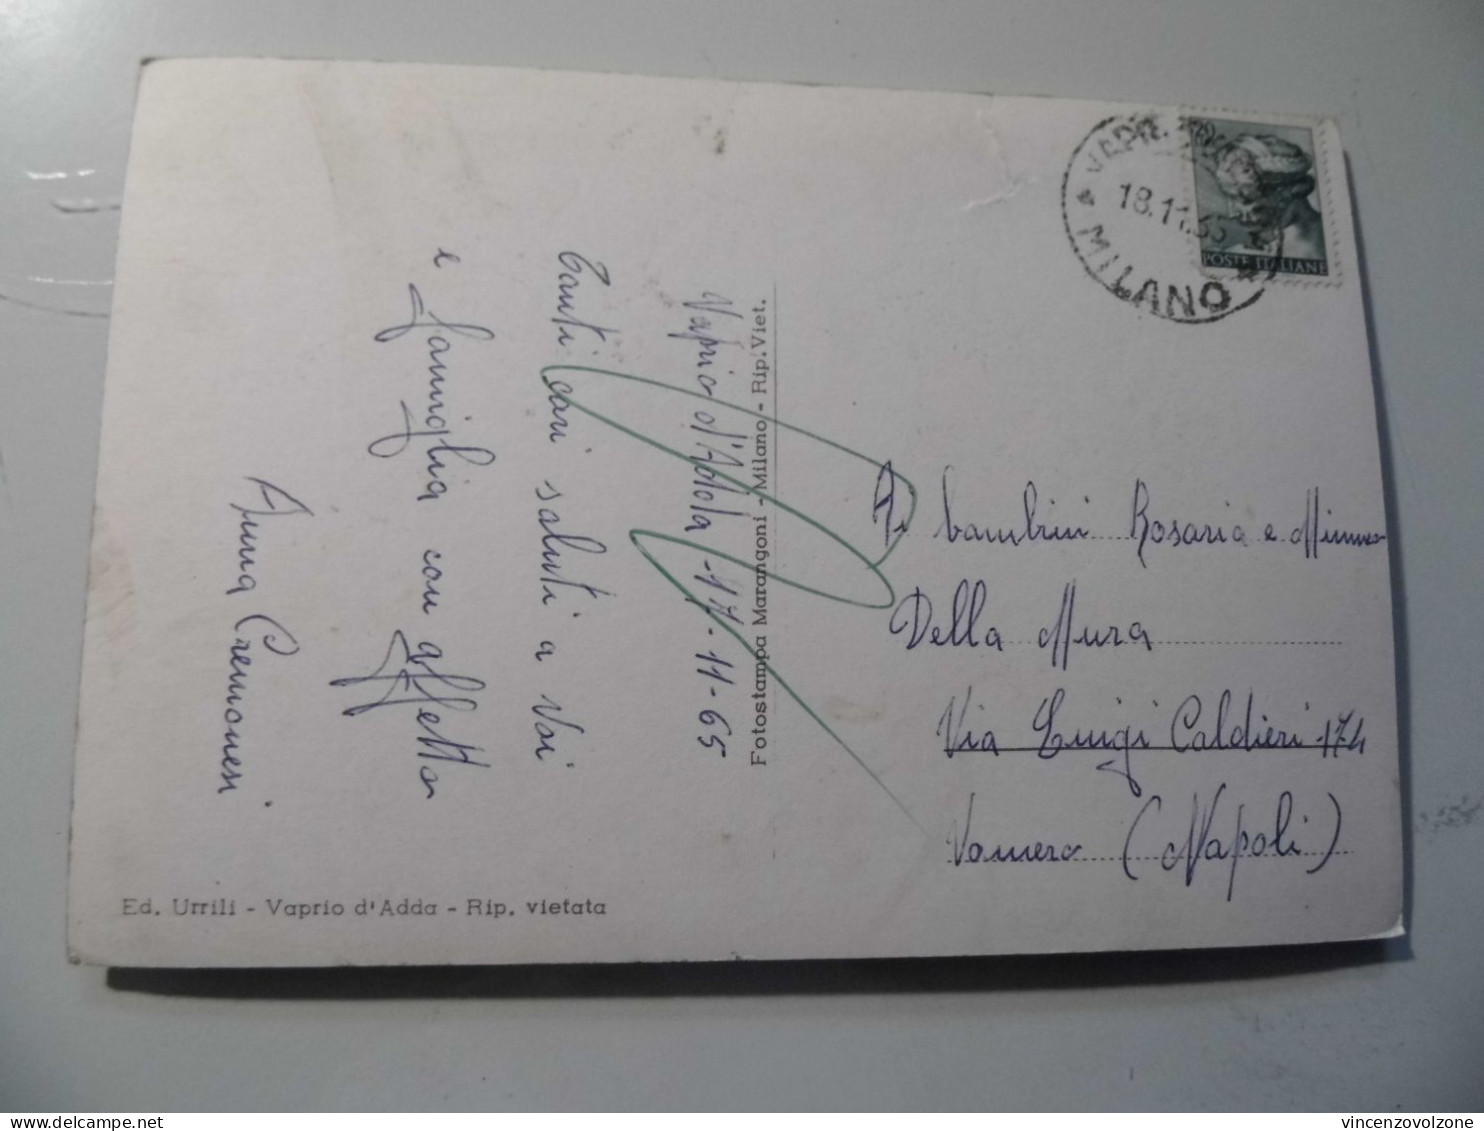 Vaprio d'Adda - 17-11-65
Tanti cari saluti a Voi
e famiglia con affetto
Anna Cremonesi
Fotostampa Marangoni - Milano - Rip. Viet.
Ed. Urrili - Vaprio d'Adda - Rip. vietata
MILANO
18.11.65
POSTE ITALIANE
Ai bambini Rosaria e Mimmo
Della Mura
Via Luigi Caldieri 174
Vomero (Napoli)
vincenzovolzone